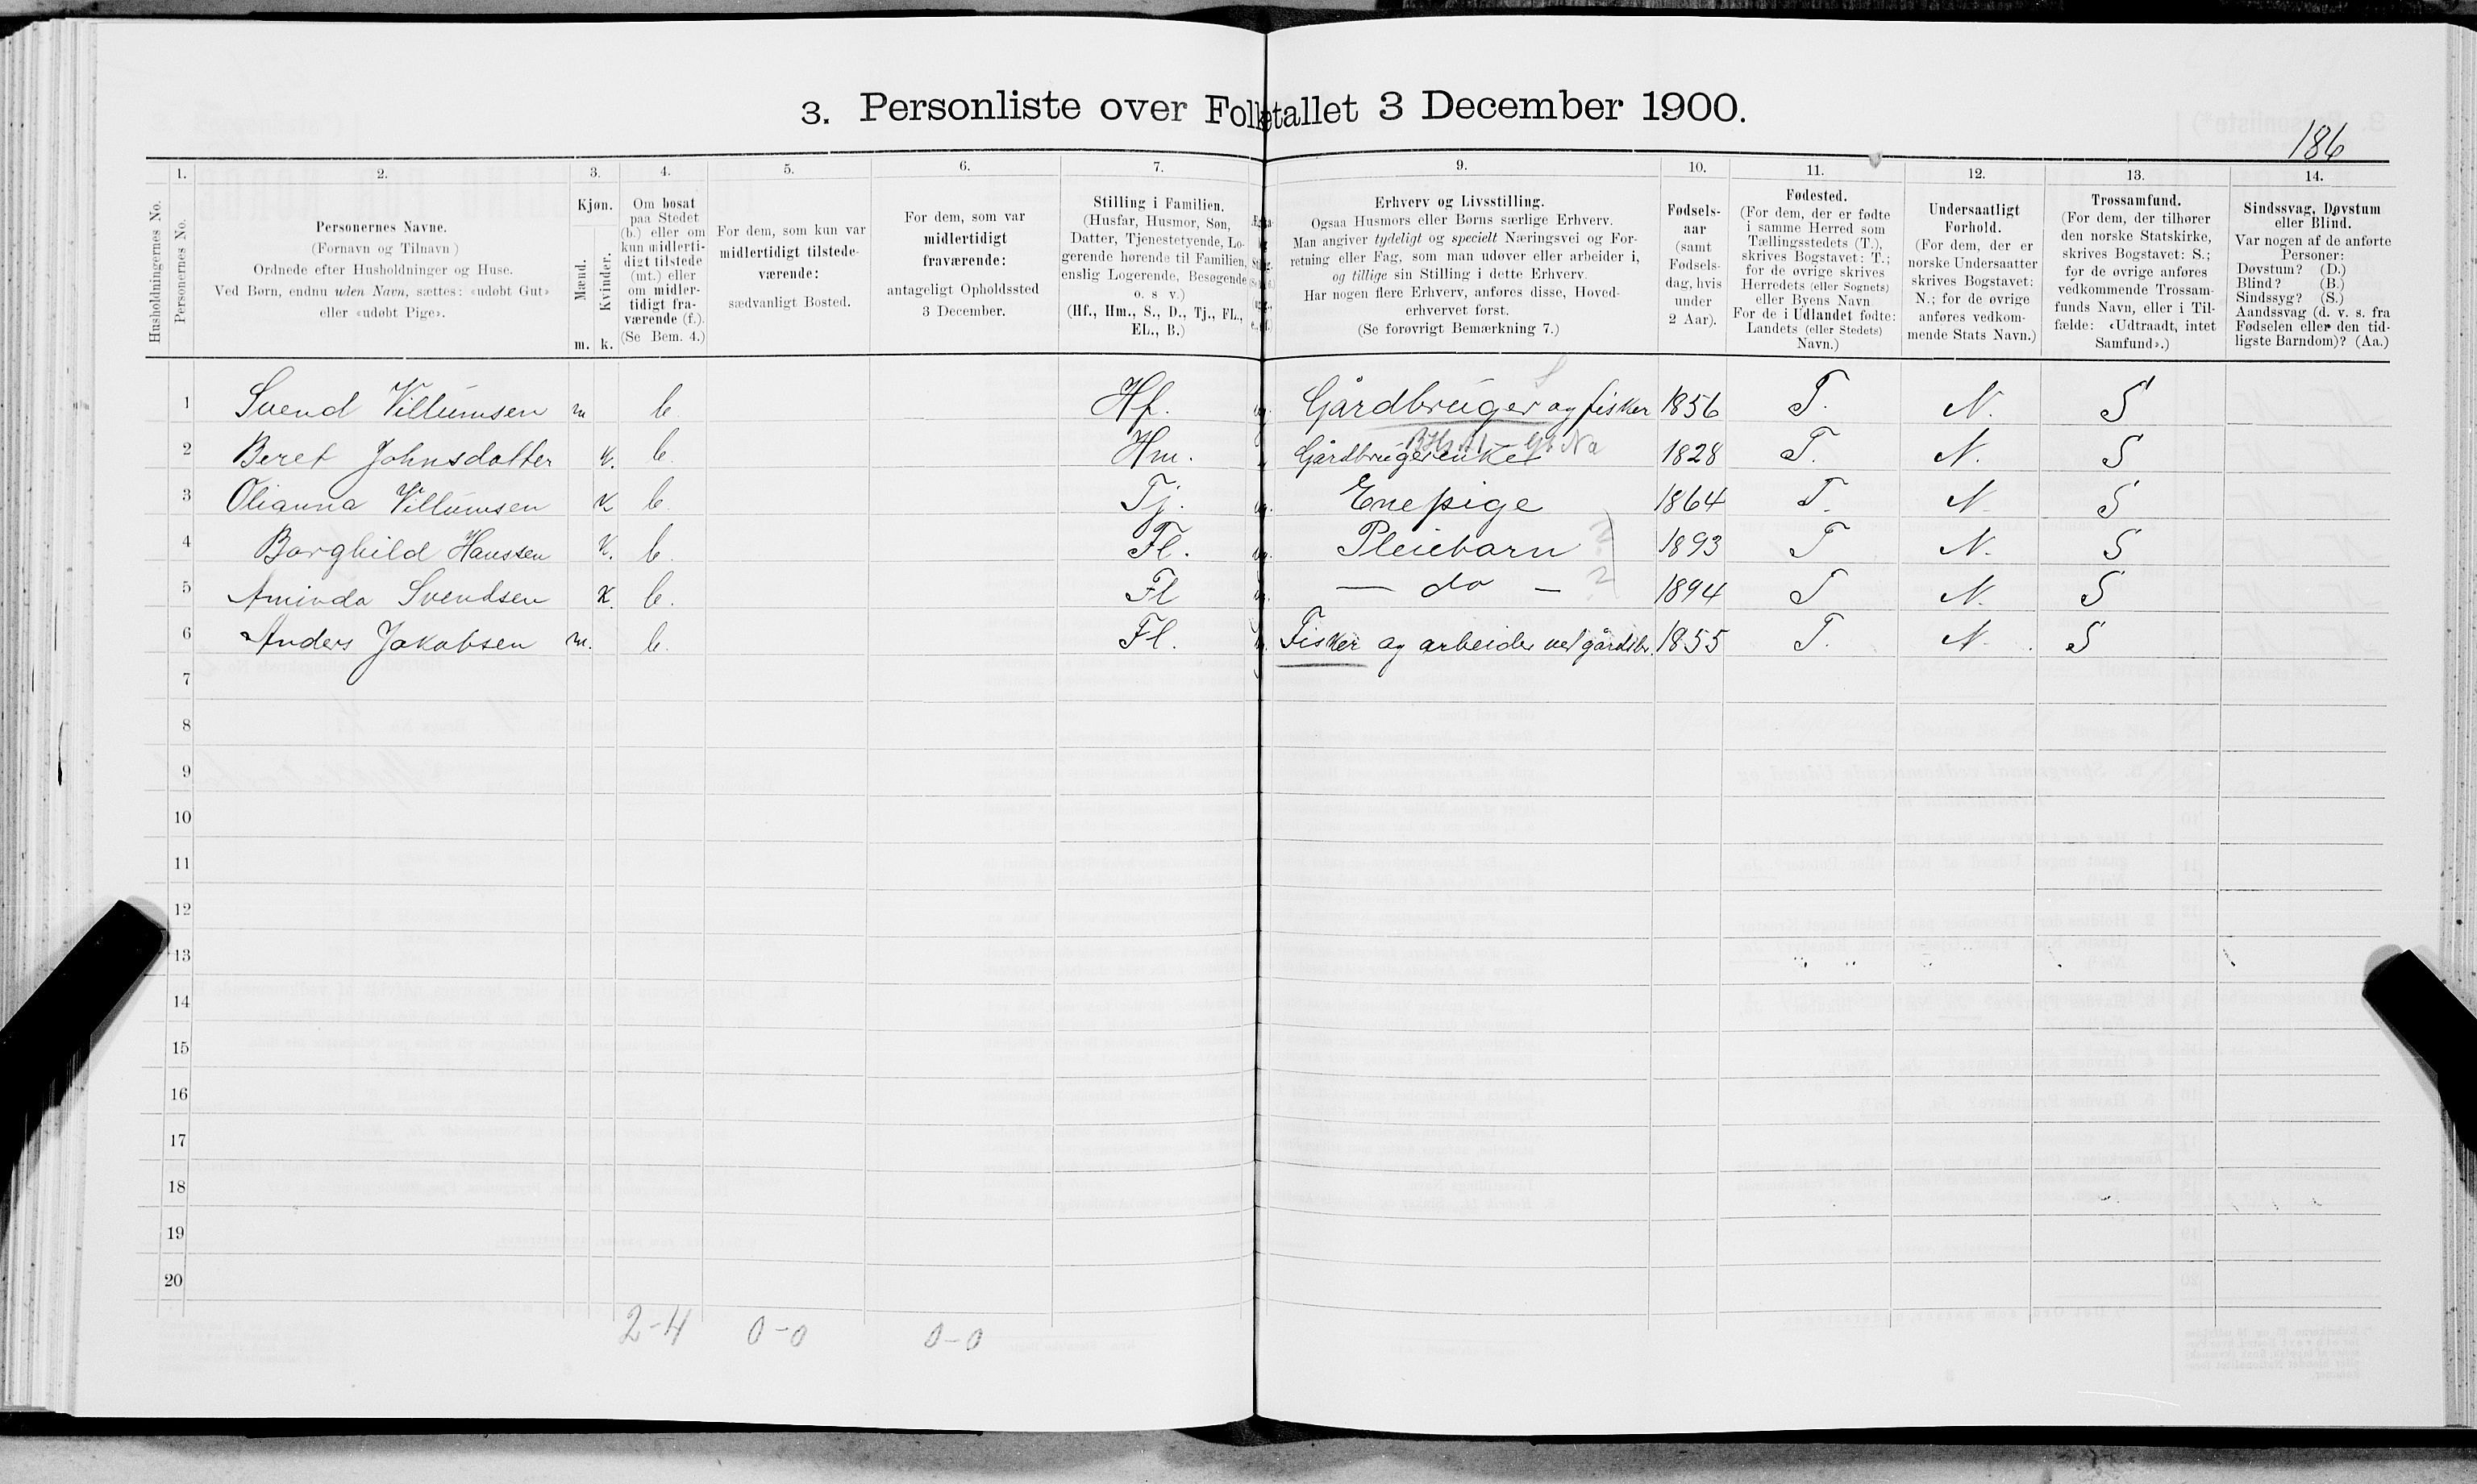 3. Personliste over Folketallet 3 December 1900.
186
1. 2. 3. 4. 5. 6. 7. 9. 10. 11. 12. 13. 14.
Husholdningernes No.
Personernes No.
Personernes Navne.
(Fornavn og Tilnavn)
Ordnede efter Husholdninger og Huse.
Ved Børn, endnu uden Navn, sættes: «udøbt Gut»
eller «udøbt Pige».
Kjøn.
Mænd.
Kvinder.
m. k.
Om bosat
paa Stedet
(b.) eller om
kun midlerti-
digt tilstede
(mt.) eller
om midler-
tidigt fra-
værende (f.).
(Se Bem. 4.)
For dem, som kun var
midlertidigt tilstede-
værende:
sædvanligt Bosted.
For dem, som var
midlertidigt
fraværende:
antageligt Opholdssted
3 December.
Stilling i Familien.
(Husfar, Husmor, Søn,
Datter, Tjenestetyende, Lo-
gerende hørende til Familien,
enslig Logerende, Besøgende
o. s v.)
(Hf., Hm., S., D., Tj., FL.,
EL., B.)
Erhverv og Livsstilling.
Ogsaa Husmors eller Børns særlige Erhverv.
Man angiver tydeligt og specielt Næringsvei og For-
retning eller Fag, som man udøver eller arbeider i,
og tillige sin Stilling i dette Erhverv.
Har nogen flere Erhverv, anføres disse, Hoved-
erhvervet først.
(Se forøvrigt Bemærkning 7.)
Fødsels-
aar
(samt
Fødsels-
dag, hvis
under
2 Aar).
Fødested.
(For dem, der er fødte
i samme Herred som
Tællingsstedets (T.),
skrives Bogstavet: T.;
for de øvrige skrives
Herredets (eller Sognets)
eller Byens Navn
For de i Udlandet fødte:
Landets (eller Stedets)
Navn.)
Undersaatligt
Forhold.
(For dem, der er
norske Undersaatter
skrives Bogstavet:
N.; for de øvrige
anføres vedkom-
mende Stats Navn.)
Trossamfund.
(For dem, der tilhører
den norske Statskirke,
skrives Bogstavet: S.;
for de øvrige anføres
vedkommende Trossam-
funds Navn, eller i Til-
fælde: «Udtraadt, intet
Samfund».)
Sindssvag, Døvstum
eller Blind.
Var nogen af de anførte
Personer:
Døvstum? (D.)
Blind? (B.)
Sindssyg? (S.)
Aandssvag (d. v. s. fra
Fødselen eller den tid-
ligste Barndom)? (Aa.)
1 Svend Villumsen m b. Hf. Gårdbruger og fisker 1856 T. N. S
2 Beret Johnsdatter k. b. Hm. Gårdbrugerenke 1828 T. N. S
3 Olianna Villumsen k b. Tj. Enepige 1864 T. N. S
4 Borghild Hanssen k. b. Fl. Pleiebarn 1893 T N. S
5 Aminda Svendsen k. b. Fl — do — 1894 T N. S
6 Anders Jakobsen m. b. Fl. Fisker og arbeider ved gårdsbr. 1855 T. N. S
7
8
9
10
11
12
13
14
15
16
17
18
19
20
2-4 0-0 0-0